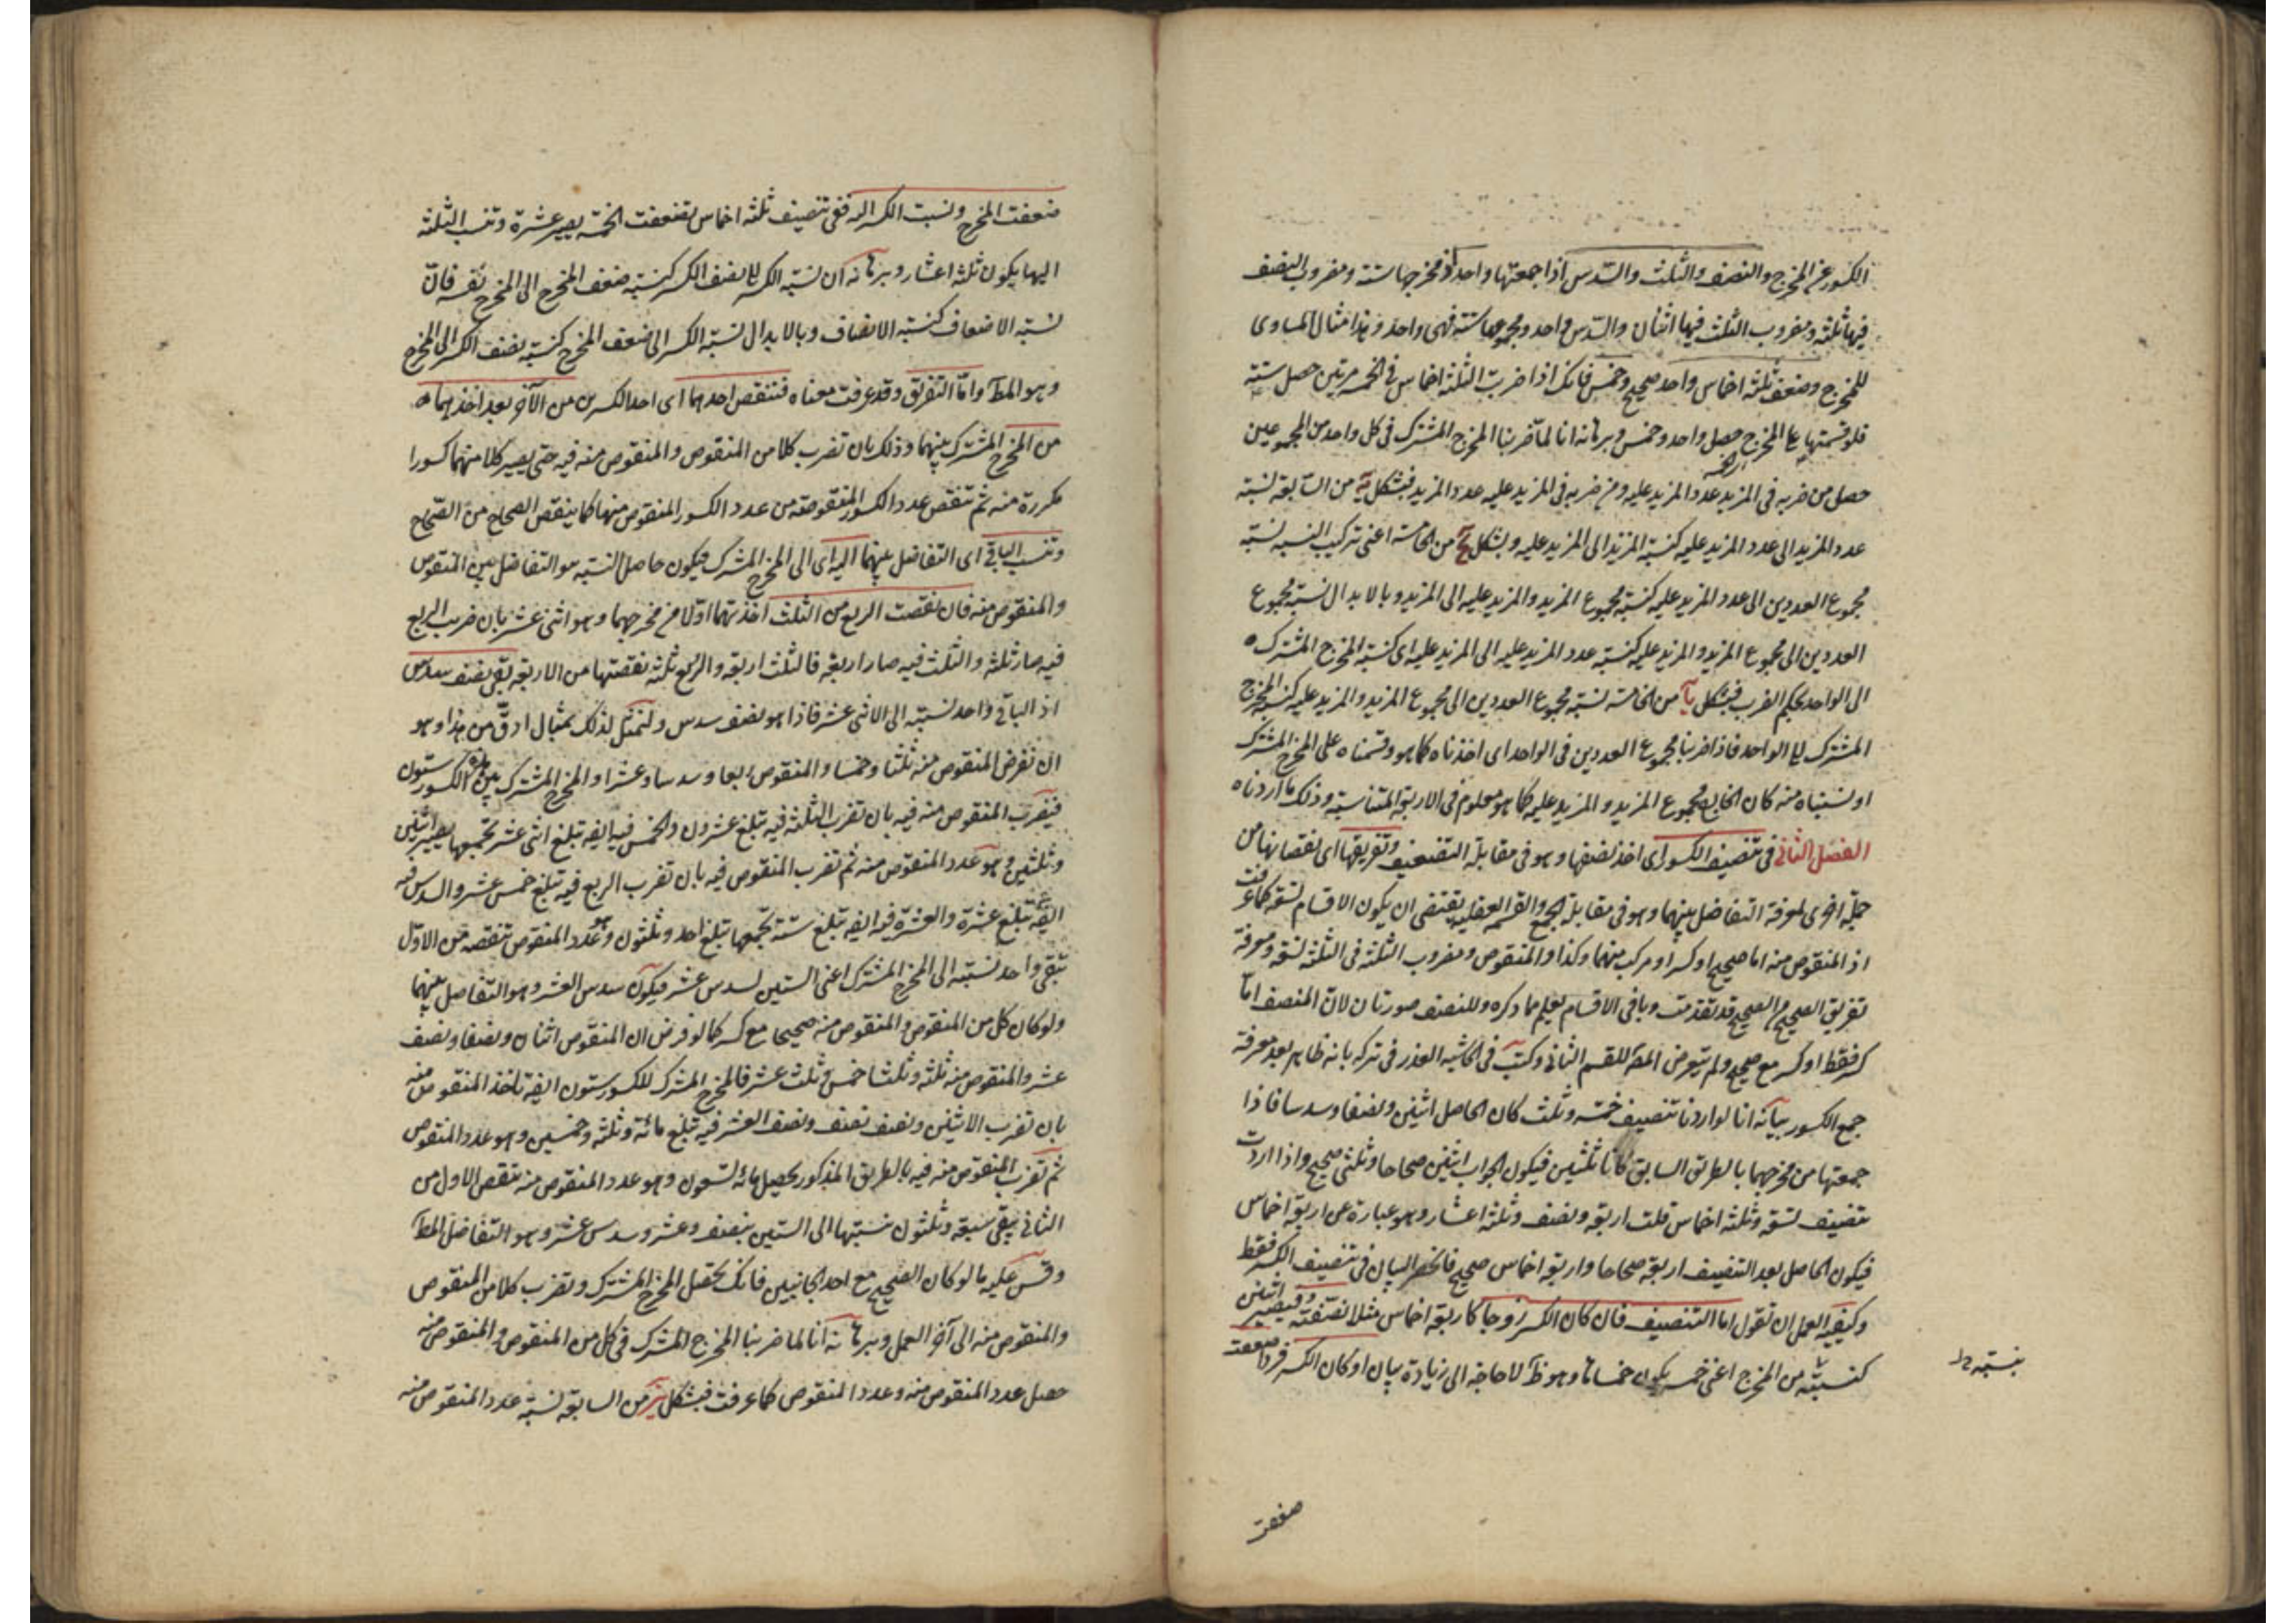 الكسور عن المخرج والنصف والثلث والسدس اذا جمعتها واحد اذ مخرجها ستة ومضروب النصف
فيها ثلثة ومضروب الثلث فيها اثنان والسدس واحد ومجموعها ستة فهى واحد وهذا مثال المساوى
للمخرج وضعف ثلثة اخماس واحد صحيح وخمس فانك اذا ضربت الثلثة اخماس فى الخمسة مرتين حصل ستة
فلو قسمتها على المخرج حصل واحد وخمس وبرهانه انا لما ضربنا المخرج المشترك فى كل واحد من المجموعين
حصل من ضربه فى المزيد عدد المزيد عليه ومن ضربه فى المزيد عليه عدد المزيد فبشكل من السابعة نسبة
عدد المزيد الى عدد المزيد عليه كنسبة المزيد الى المزيد عليه وبشكل يح من الخامسة اعنى تركيب النسبه نسبة
مجموع العددين الى عدد المزيد عليه كنسبة مجموع المزيد والمزيد عليه الى المزيد وبالابدال نسبة مجموع
العددين الى مجموع المزيد والمزيد عليه كنسبة عدد المزيد عليه الى المزيد عليه اى كنسبة المخرج المشترك
الى الواحد بحكم الضرب فبشكل يا من الخامسة نسبة مجموع العددين الى مجموع المزيد والمزيد عليه كنسبة المخرج
المشترك الى الواحد فاذا ضربنا مجموع العددين فى الواحد اى اخذناه كما هو وقسمناه على المخرج المشترك
او نسبناه منه كان الخارج مجموع المزيد والمزيد عليه كما هو معلوم فى الاربعة المتناسبة وذلك ما اردناه
الفصل الثانى فى تنصيف الكسور اى اخذ نصفها وهو فى مقابلة التضعيف وتفريقها اى نقصانها من
جملة اخرى لمعرفة التفاضل بينهما وهو فى مقابلة الجمع والقسمة العقلية يقتضى ان يكون الاقسام تسعة كما عرفت
اذ المنقوص منه اما صحيح او كسر او مركب منهما وكذا المنقوص ومضروب الثلثة فى الثلثة تسعة ومعرفة
تفريق الصحيح من الصحيح قد تقدمت وباقى الاقسام يعلم مما ذكره وللنصف صورتان لان المنصف اما
كسر فقط او كسر مع صحيح ولم يتعرض المص للقسم الثانى وكتب فى الحاشيه العذر فى تركه بانه ظاهر بعد معرفة
جمع الكسور بيانه انا لو اردنا تنصيف خمسة وثلث كان الحاصل اثنين ونصفا وسدسا فاذا
جمعتها من مخرجهما بالطريق السابق كانا ثلثين فيكون الجواب اثنين صحاحا وثلثى صحيح واذا اردت
تنصيف تسعة وثلثة اخماس قلت اربعة ونصف وثلثة اعشار وهو عبارة عن اربعة اخماس
فيكون الحاصل بعد التنصيف اربعة صحاحا واربعة اخماس صحيح فانحصر البيان فى تنصيف الكسر فقط
وكيفية العمل ان تقول اما التنصيف فان كان الكسر زوجا كاربعة اخماس مثلا نصفته فيصير اثنين
كنسبته من المخرج اعنى خمسة يكون خمساها وهو ظ لا حاجة الى زيادة بيان او كان الكسر فردا ضعفت
ضعفت
ضعفت المخرج ونسبت الكسر اليه ففى تنصيف ثلثة اخماس تضعفت الخمسة يصير عشرة وتنسب الثلثة
اليها يكون ثلثة اعشار وبرهانه ان نسبة الكسر الى نصف الكسر كنسبة ضعف المخرج الى المخرج نفسه فان
نسبة الاضعاف كنسبة الانصاف وبالابدال نسبة الكسر الى ضعف المخرج كنسبة نصف الكسر الى المخرج
وهو المط واما التفريق وقد عرفت معناه فتنقص احدهما اى احد الكسرين من الآخر بعد اخذهما
من المخرج المشترك بينهما وذلك بان تضرب كلا من المنقوص والمنقوص منه فيه حتى يصير كلا منهما كسورا
مكررة منه ثم تنقص عدد الكسور المنقوصة من عدد الكسور المنقوص منها كما ينقص الصحاح من الصحاح
وتنسب الباقى اى التفاضل بينهما اليه اى الى المخرج المشترك فيكون حاصل النسبة هو التفاضل بين المنقوص
والمنقوص منه فان نقصت الربع من الثلث اخذتهما اولا من مخرجهما وهو اثنى عشر بان ضرب الربع
فيه صار ثلثة والثلث فيه صار اربعة فالثلث اربعة والربع ثلثة نقصتها من الاربعة بقى نصف سدس
اذ الباقى واحد نسبته الى الاثنى عشر فاذا هو نصف سدس ولنمثل لذلك بمثال ادق من هذا وهو
ان نفرض المنقوص منه ثلثا وخمسا والمنقوص ربعا وسدسا وعشرا والمخرج المشترك بين هذه الكسور ستون
فيضرب المنقوص منه فيه بان تضرب الثلثة فيه تبلغ عشرون والخمس فيه ايضا تبلغ اثنى عشر تجمعها يصير اثنين
وثلثين وهو عدد المنقوص منه ثم تضرب المنقوص فيه بان تضرب الربع فيه تبلغ خمس عشر والسدس فيه
ايضا تبلغ عشرة والعشرة فيه ايضا تبلغ ستة تجمعها تبلغ احد وثلثون وهو عدد المنقوص تنقصه من الاول
تبقى واحد نسبته الى المخرج المشترك اعنى الستين لسدس عشر فيكون سدس العشر وهو التفاضل بينهما
ولو كان كل من المنقوص والمنقوص منه صحيحا مع كسر كما لو فرض ان المنقوص اثنان ونصفا ونصف
عشر والمنقوص منه ثلثة وثلثا خمس وثلث عشر فالمخرج المشترك للكسور ستون ايضا تاخذ المنقوص منه
بان تضرب الاثنين ونصف ونصف العشر فيه تبلغ مائة وثلثة وخمسين وهو عدد المنقوص
ثم تضرب المنقوص منه فيه بالطريق المذكور يحصل مائه تسعون وهو عدد المنقوص منه تنقص الاول من
الثانى يبقى سبعة وثلثون نسبتها الى الستين بنصف وعشر وسدس عشر وهو التفاضل المط
وقس عليه ما لو كان الصحيح مع احد الجانبين فانك تحصل المخرج المشترك وتضرب كلا من المنقوص
والمنقوص منه الى آخر العمل وبرهانه انا لما ضربنا المخرج المشترك فى كل من المنقوص والمنقوص منه
حصل عدد المنقوص منه وعدد المنقوص كما عرفت فبشكل من السابعة نسبة عدد المنقوص منه